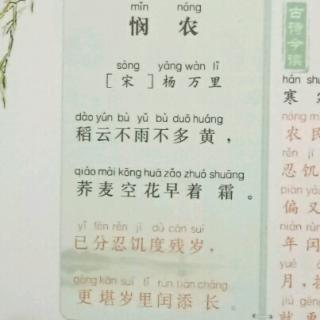 mǐn nóng
悯 农
sòng yáng wàn lǐ
［宋］杨 万 里
dào yún bù yǔ bù duō huáng
稻云不雨不多 黄，
qiáo mài kōng huā zǎo zhuó shuāng
荞麦空花早着 霜。
yǐ fēn rěn jī dù cán suì
已分忍饥度残岁，
gèng kān suì lǐ rùn tiān cháng
更堪岁里闰添 长。
古诗今读
hán shu
寒
nóng m
农 民
rěn jī
忍饥
piān yòu
偏 又
nián rùn
年 闰
yuè
月，
jiù gèng
就 更